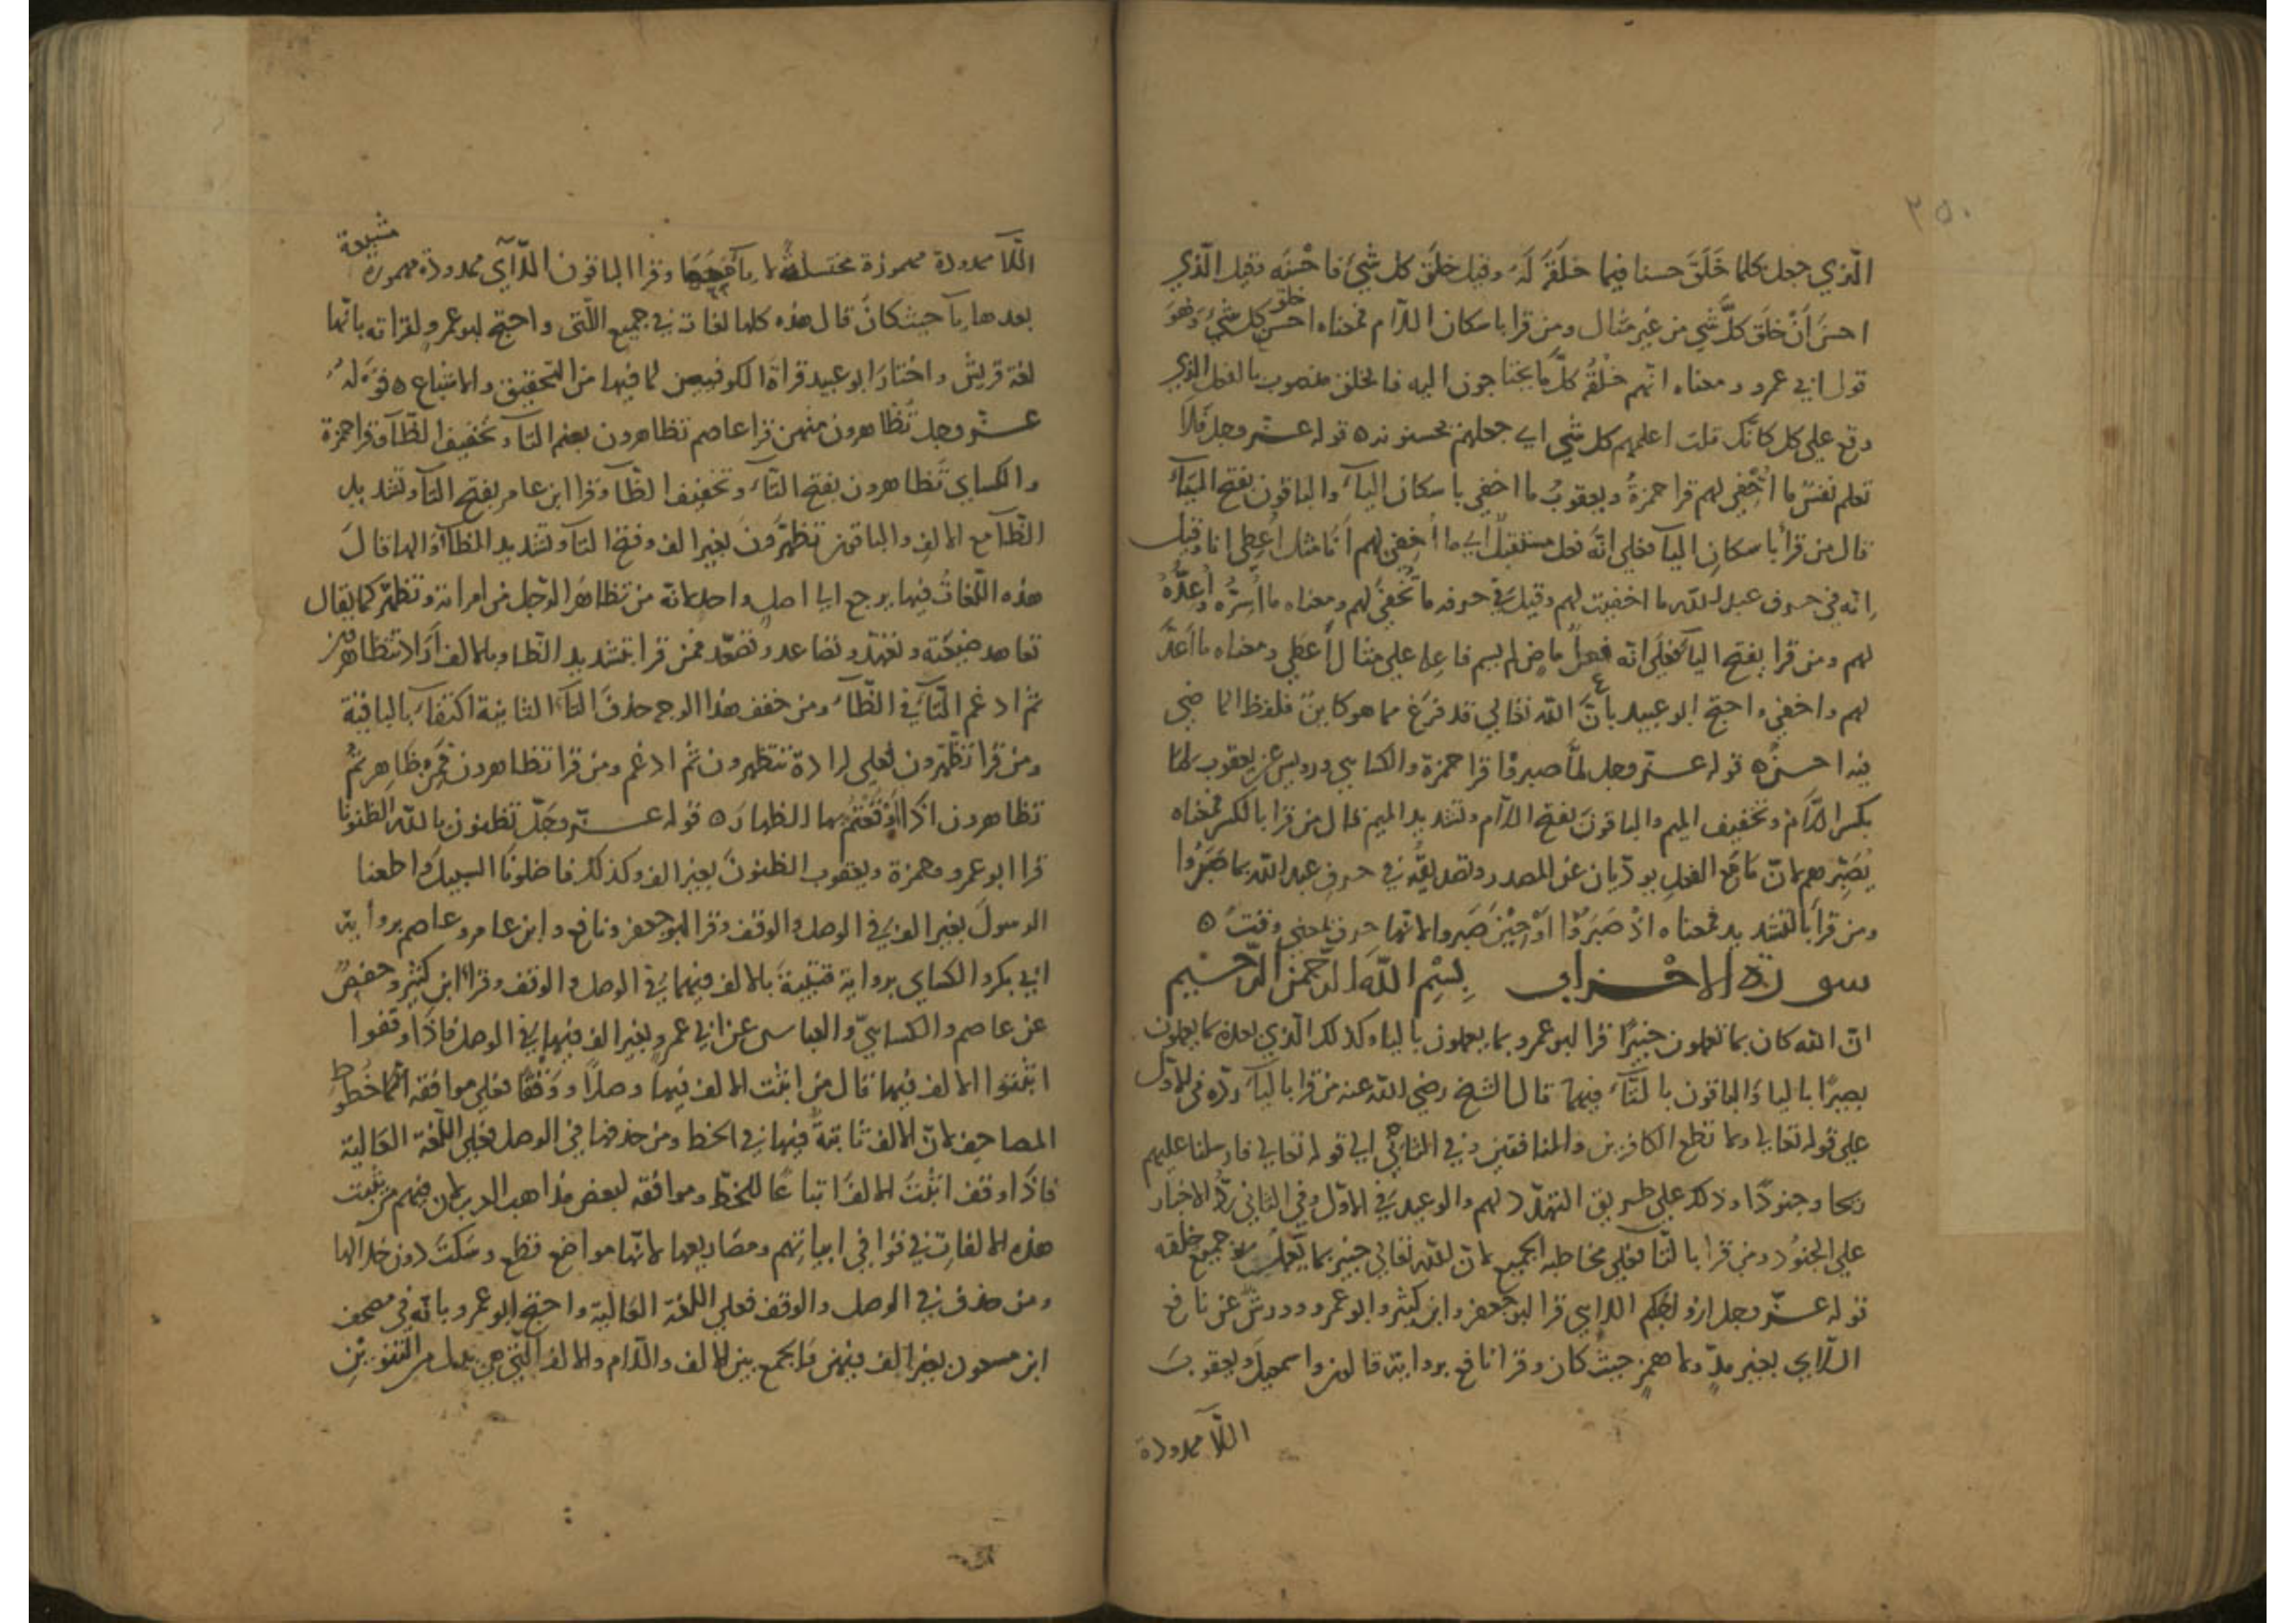 ٢٥٠
الّذي جعل كلما خَلَقَ حسنا فيما خلقَهُ لَهُ وقيل خلقَ كل شَيءٍ فاحْسَنَه وقيل الّذي
احسَنَ اَنْ خلَقَ كلَّ شيٍ من غير مثال ومن قرا باسكان اللّام فمعناه احسَنَ خلق كل شيءٍ وَهُوَ
قول ابي عمرو ومعناه انّهم خلْقُ كلّ ما يحتاجون اليه فالخلق منصوب بالفعل الذي
وقع على كل كانّك قلت اعلمهم كل شي اي جعلهم يحسنونه ٥ قوله عزّ وجل فَلا
تعلم نفسٌ ما اُخْفِي لهم قرا حمزةُ ويعقوبُ ما اخفي باسكان اليآء والباقون بفتح اليَآء
قال من قرأ باسكانِ اليآء فعلى انّه فعل مستقبل اي ما اُخفِي لهم اَنَا مثل اُعطِي انا وقيل
اِنّه في حرف عبد اللّه ما اخفيت لهم وقيل في حرفه ما نُخفِي لهم ومعناه ما اُسِرُّه واُعِدُّهُ
لهم ومن قرا بفتح اليآء فعلَى انّه فعل ماضٍ لم يسم فاعله على مثال اُعطِي ومعناه ما اُعِدَّ
لهم واخفي واحتج ابو عبيد بانَّ اللّه تعالى قد فرَغ مما هو كاين فلفظ الماضي
فيه احسن ٥ قوله عزّ وجل لمّا صبروا قرا حمزة والكسايي ورويس عن يعقوب لما
بكسر اللّام وتخفيف الميم والباقونَ بفتح اللّام وتشديد الميم قال من قرا بالكسر فمعناه
بصَبْرهم لانّ مَا مع الفعلِ يودّيان عن المصدر وتصديقُه في حرفِ عبد اللّه بما صَبَرُوا
ومن قرأ بالتشديد فمعناه اذْ صَبَرُوْا اَوْ حِيْنَ صَبَروا لانّها حرف بمعنى وقتٍ ٥
سورة الاحْزاب بِسْمِ اللّهِ الرّحمنِ الرّحيم
انّ اللّه كان بما تعملون خبيرًا قرا ابو عمرو بما يعملون بالياء وكذلك الّذي بعده بما يعملون
بصيرًا بالياء وَالباقون بالتّاء فيهما قال الشيخ رضي اللّه عنه من قرا باليآء ردّه في الاوّل
على قوله تعالى ولا تطع الكافرين والمنافقين وفي الثانِي الي قوله تعالى فارسلنا عليهم
ريحا وجنودًا وذلك على طريق التهدّد لهم والوعيد في الاوّل وفي الثاني رَدّ الاخبار
على الجنُودِ ومن قرا بالتّاء فعلى مخاطبة الجميع لانّ اللّه تعالى خبير بما يَعْمَلُه جميع خلقه
قوله عزّ وجل ازواجكم اللايي قرا ابو جعفر وابن كثير وابو عمرو وورشٌ عن نافع
اللّايي بغير مدٍّ ولا همزٍ حيثُ كان وقرا نافع برواية قالون واسمعيلَ ويعقوبَ
اللّآ ممدودة
اللّآ ممدودة مهموزة مختلسة لا يآء بعدها وقرا الباقون اللّآي ممدودة مهموزة مشبعة
بعدها يآء حيث كانَ قال هذه كلها لغات في جميع اللّتي واحتج ابو عمرو لقراته بانّها
لغة قريش واختارَ ابو عبيد قراة الكوفيين لما فيها من التحقيق والاشباع ٥ قوْلهُ
عزّ وجل تُظَاهرون منهن قرا عاصم تظاهرون بضم التآء وتخفيف الظّآء وقرا حمزة
والكسايي تَظَاهرون بفتح التّآء وتخفيف الظّآء وقرا ابن عامر بفتح التآء وتشديد
الظّآء مع الالفِ والباقون تظّهّرُونَ بغير الف وفتح التآء وتشديد الظّآء والهاء قالَ
هذه اللّغاتُ فيها يرجع الى اصلٍ واحد لانّه من تظاهَرَ الرّجل من امراته وتظهّر كما يقال
تعاهد ضيعَته وتعهّد وتصاعد وتصعّد فمن قرا بتشديد الظّاء وبالالف اَرَادَ تتظاهرون
ثم ادغم التّآء في الظّآء ومن خفف هذا الوجه حذفَ التآء الثانية اكتفآء بالباقية
ومن قرا تظّهّرون فعلى ارادة تتظهرون ثم ادغم ومن قرا تظاهرون فمن ظَاهر ثم
تظاهرون اذَا اَوْقَعْتُم بها الظهارَ ٥ قوله عزّ وجَلّ تظنون باللّه الظنونا
قرا ابو عمرو وحمزة ويعقوب الظنونَ بغير الف وكذلك فاضلونَا السبيلَ واطعنا
الرسولَ بغير الف في الوصل والوقف وقرا ابو جعفر ونافع وابن عامر وعاصم برواية
ابي بكر والكسايي برواية قتيبة بالالف فيهما في الوصل والوقف وقرا ابن كثير وحفصٌ
عن عاصم والكسايي والعباس عن ابي عمرو بغير الف فيها في الوصل فاذَا وقفوا
اثبتوا الالف فيها قال من اثبت الالف فيها وصلًا ووَقْفًا فعلى موافقة خُطوط
المصاحِفِ لانّ الالف ثابتةٌ فيها في الخط ومن حذفها في الوصل فعلى اللّغة العَالية
فاذَا وقف اثبتَ الالفَ اتباعًا للخطّ وموافقة لبعض مذاهب العرب لان منهم من يثبت
هذه الالفاتِ في قوافي ابياتهم ومصاريعها لانّها مواضع قطع وسَكت دون خلالها
ومن حذف في الوصل والوقف فعلى اللغة العَالية واحتج ابو عمرو بانّه في مصحف
ابن مسعود بغير الف فيهن فلم يجمع بين الالف واللّام والالف الّتي هي بدل من التنوينِ